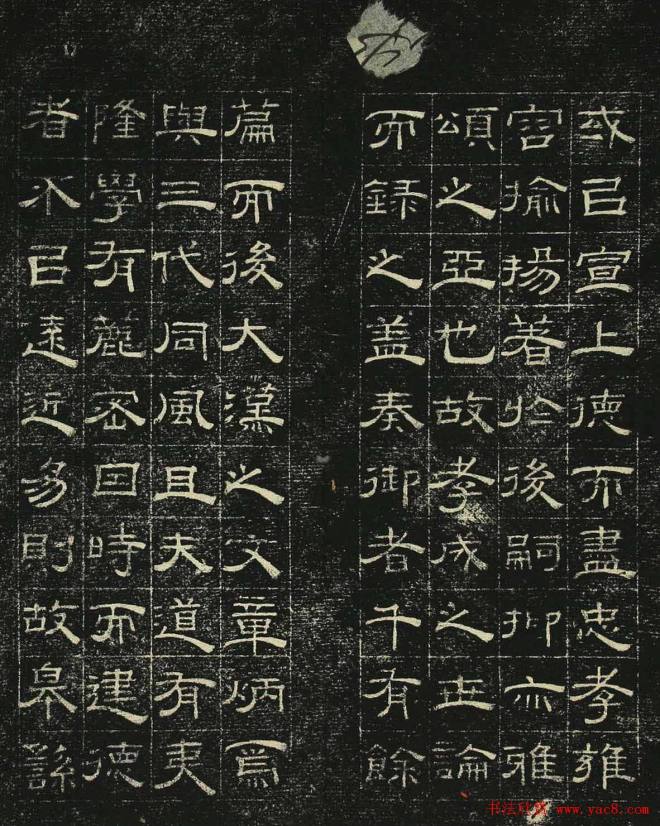 或㠯宣上德而盡忠孝雍
容揄揚著於後嗣抑亦雅
頌之亞也故孝成之世論
而録之盖奏御者千有餘
篇而後大漢之文章炳焉
與三代同風且夫道有夷
隆學有麤密因時而建德
者不㠯遠近易則故皋繇
书法欣赏 www.yac8.com